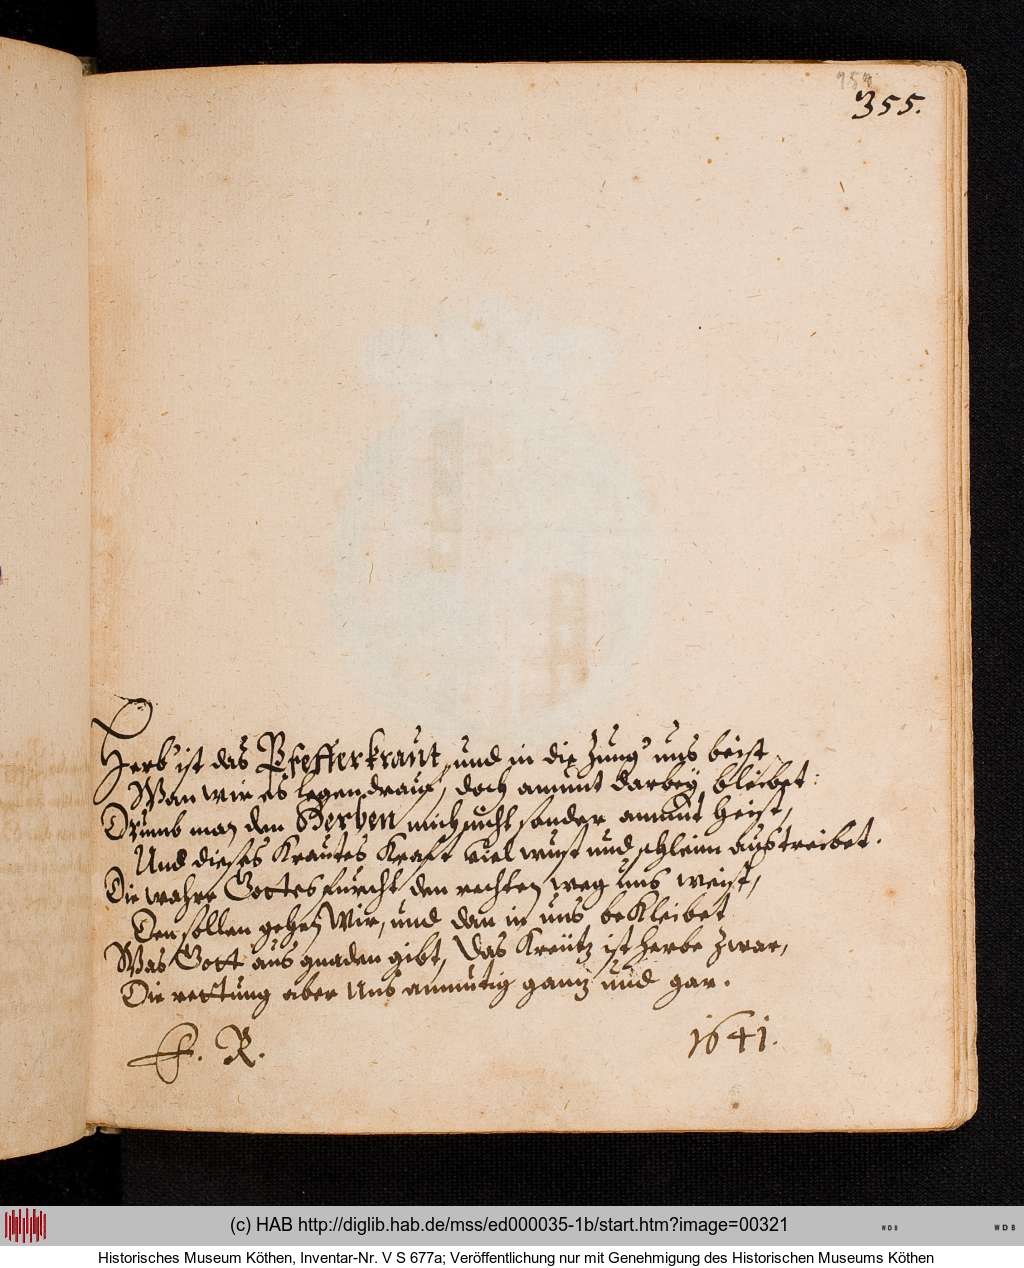 355.
Herb' ist das Pfefferkraut, und in die Zung' uns beist
Wan wir es legen drauf, doch anmut darbeÿ bleibet:
Drumb man den Herben mich nicht sonder anmut heist,
Und dieses Krautes Kraft viel wust und schleim austreibet.
Die wahre Gottesfurcht den rechten weg uns weist,
Den sollen gehen Wir, und dan in uns bekleibet
Was Gott aus gnaden gibt, Das Kreütz ist herbe zwar,
Die rettung aber Uns anmutig gantz und gar.
R. 1641.
(c) HAB http://diglib.hab.de/mss/ed000035-1b/start.htm?image=00321
WDB WDB
Historisches Museum Köthen, Inventar-Nr. V S 677a; Veröffentlichung nur mit Genehmigung des Historischen Museums Köthen